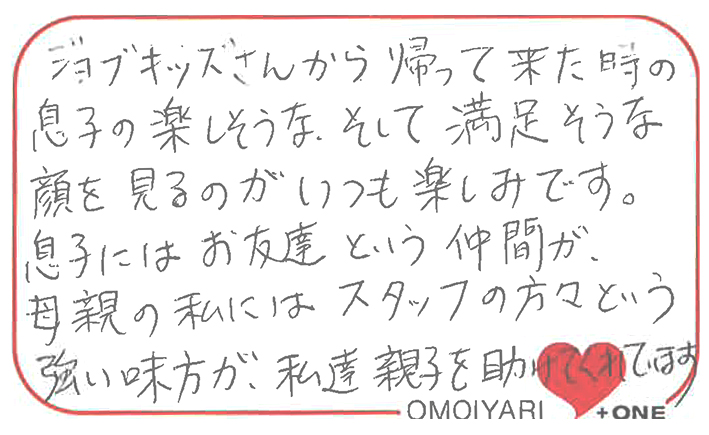 ジョブキッズさんから帰って来た時の
息子の楽しそうな、そして満足そうな
顔を見るのがいつも楽しみです。
息子にはお友達という仲間が、
母親の私にはスタッフの方々という
強い味方が、私達親子を助けてくれています
OMOIYARI +ONE